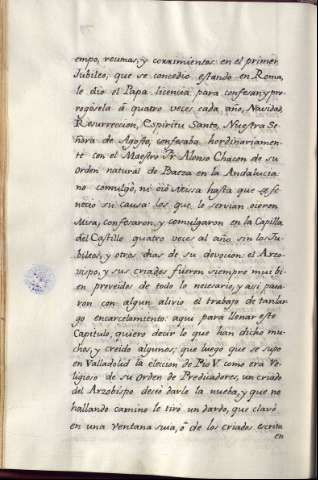 empo, reumas, y corrimientos: en el primer
Jubileo, que se concedio estando en Roma,
le dio el Papa licencia para confesar, y pro
rogósela â quatro veces cada año, Navidad,
Resurreccion, Espiritu Santo, Nuestra Se
ñora de Agosto, confesaba hordinariamen
te con el Maestro Fr. Alonso Chacon de su
orden natural de Baeza en la Andalucia
no comulgó, ni oió Missa hasta que se fe
neció su causa: los que lo servian oieron
Missa, confesaron, y comulgaron en la Capilla
del Castillo quatro veces al año, sin los Ju
bileos, y otros dias de su devocion: el Arzo
vispo, y sus criados fueron siempre mui bi
en preveidos de todo lo necesario, y asi pasa
ron con algun alivio el trabajo de tan lar
go encarcelamiento: aqui para llenar este
Capitulo, quiero decir lo que han dicho mu
chos, y creido algunos; que luego que se supo
en Valladolid la eleccion de Pio V. como era re
ligioso de su orden de Predicadores, un criado
del Arzobispo deseó darle la nueba, y que no
hallando camino le tiró un dardo, que clavó
en una ventana suia, ô de los criados escrita
en